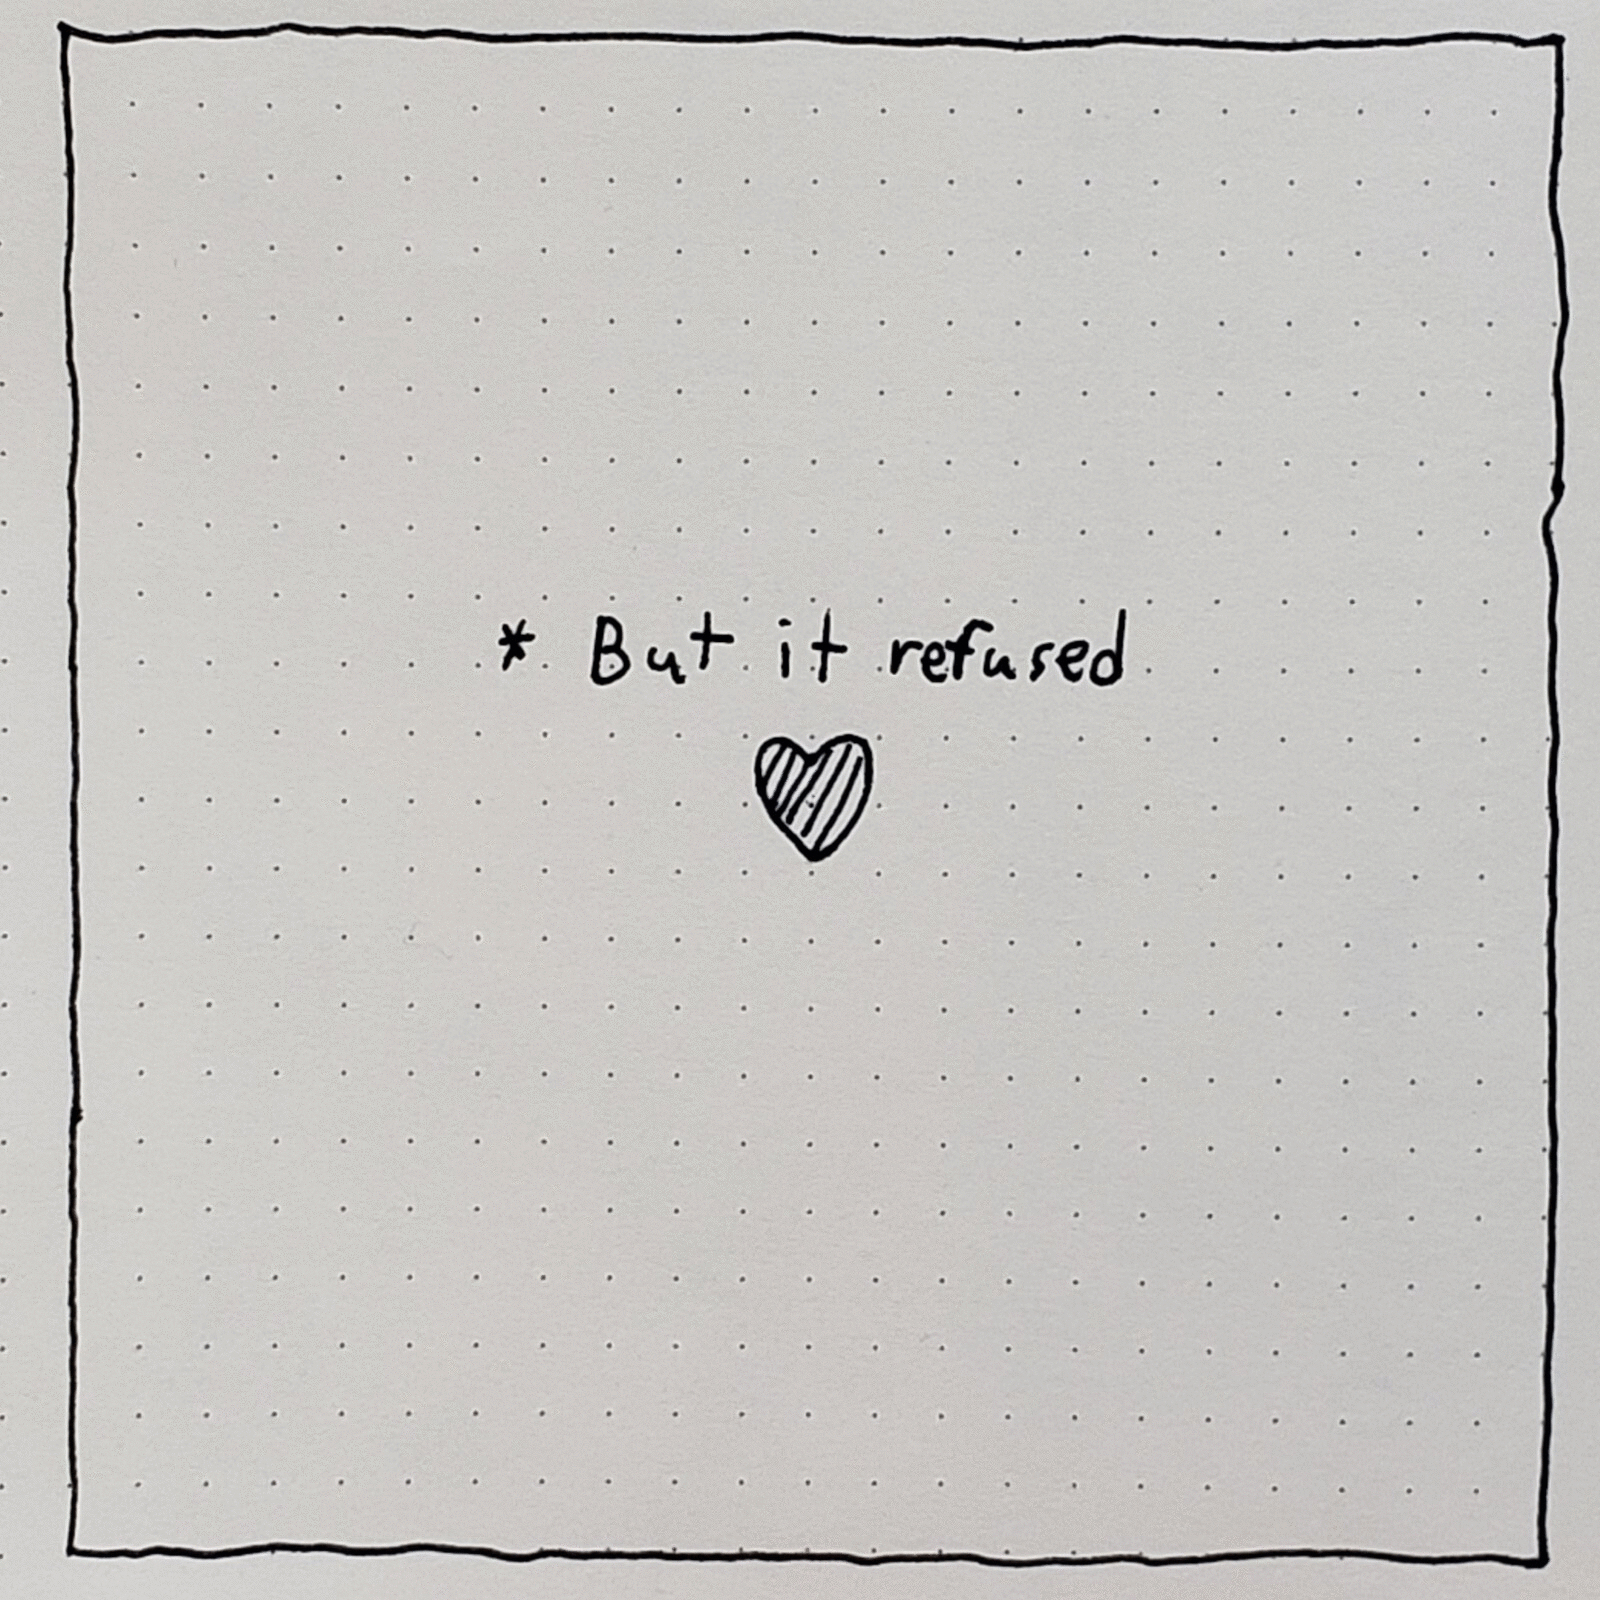 * But it refused